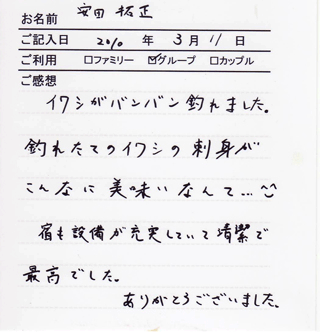 お名前 安田 拓正
ご記入日 2010 年 3月 11日
ご利用 □ファミリー ☑グループ □カップル
ご感想
イワシがバンバン釣れました。
釣れたてのイワシの刺身が
こんなに美味いなんて…^^
宿も設備が充実していて清潔で
最高でした。
ありがとうございました。